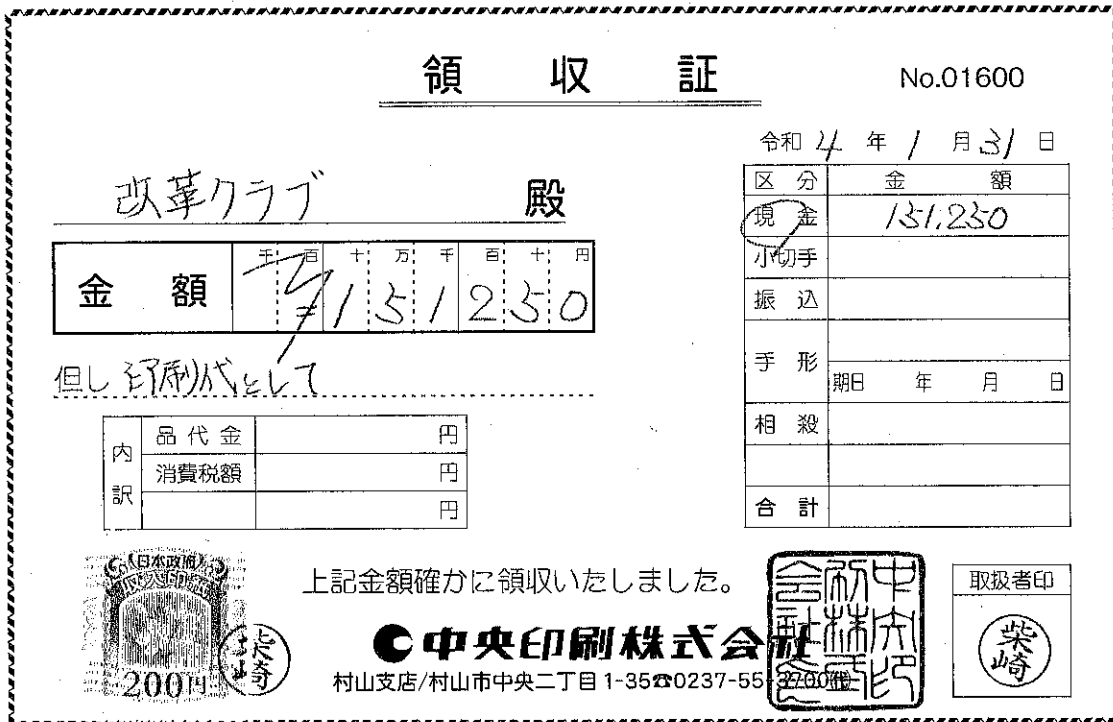 領収証
No.01600
令和 4 年 1 月 31 日
改革クラブ 殿
金額 千 百 十 万 千 百 十 円
¥151250
但し 印刷代として
内訳
品代金 円
消費税額 円
円
区分 金額
現金 151,250
小切手
振込
手形
期日 年 月 日
相殺
合計
日本政府
収入印紙
200円
柴崎
上記金額確かに領収いたしました。
中央印刷株式会社
村山支店/村山市中央二丁目1-35☎0237-55-3700㈹
中央印刷株式会社
取扱者印
柴崎